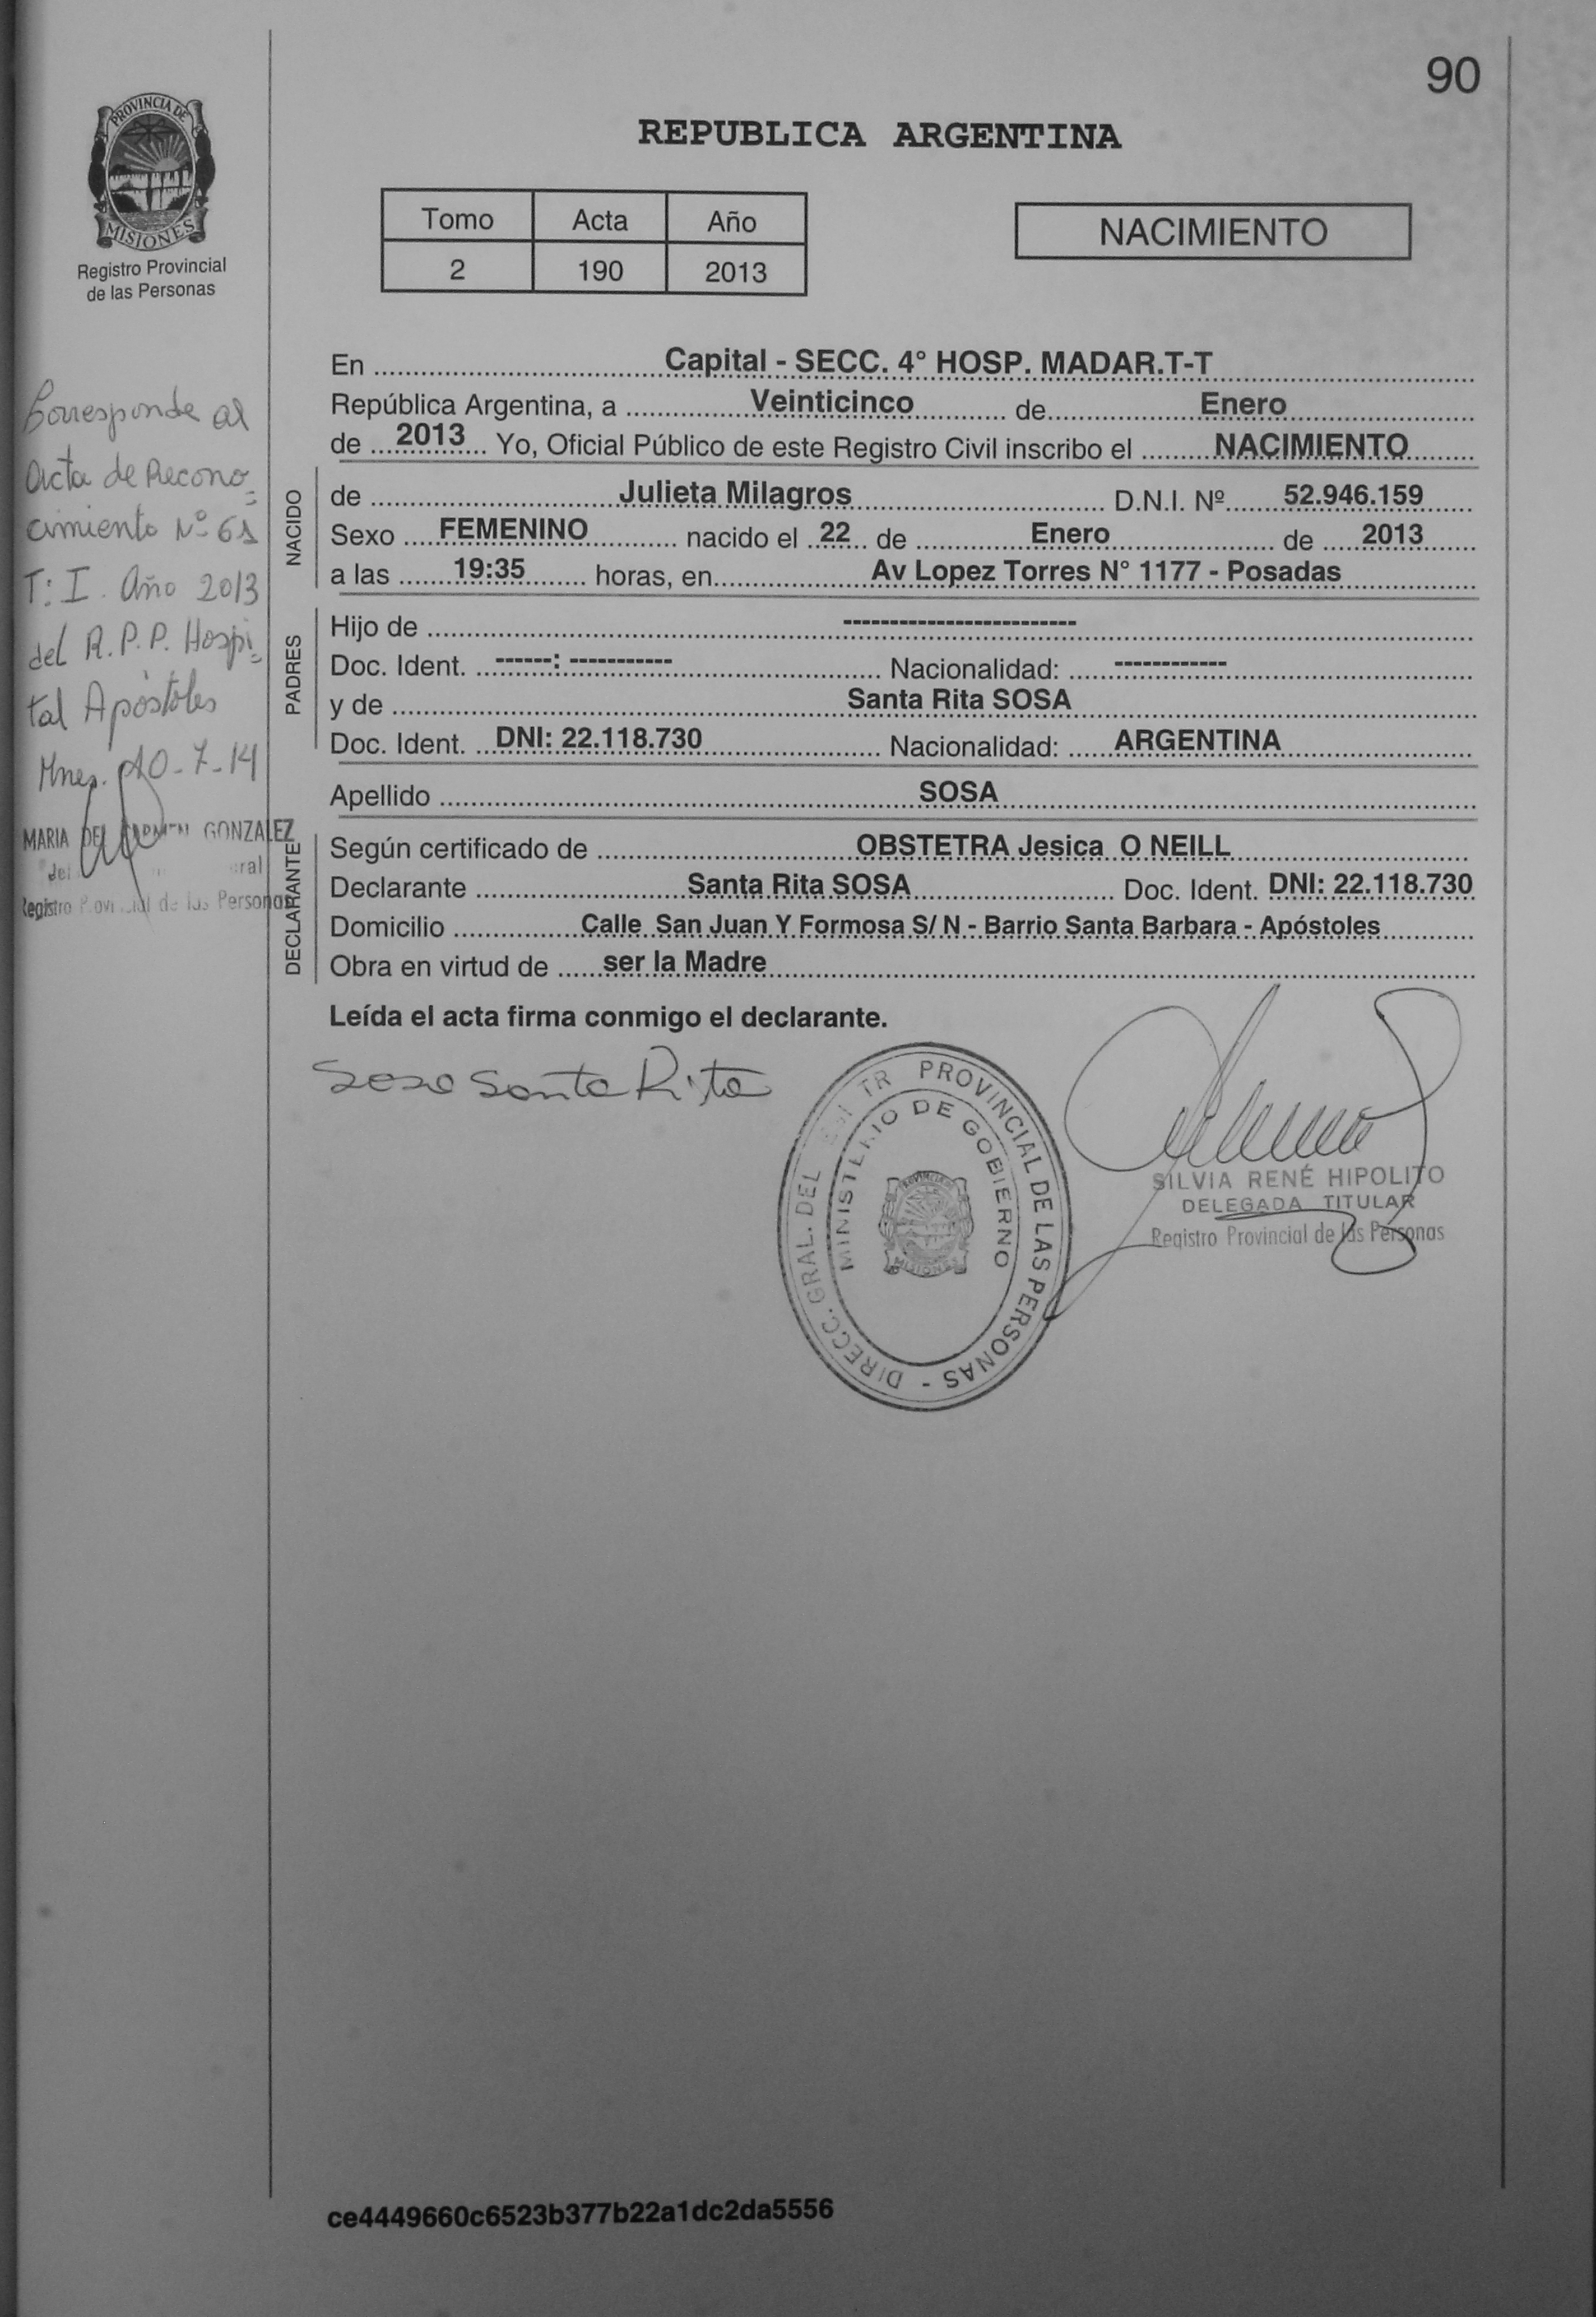 90
PROVINCIA DE
MISIONES
Registro Provincial
de las Personas
REPUBLICA ARGENTINA
Tomo Acta Año
2 190 2013
NACIMIENTO
En Capital - SECC. 4° HOSP. MADAR.T-T
República Argentina, a Veinticinco de Enero
de 2013 Yo, Oficial Público de este Registro Civil inscribo el NACIMIENTO
NACIDO
de Julieta Milagros D.N.I. Nº 52.946.159
Sexo FEMENINO nacido el 22 de Enero de 2013
a las 19:35 horas, en Av Lopez Torres N° 1177 - Posadas
PADRES
Hijo de -------------------------
Doc. Ident. ------: ----------- Nacionalidad: ------------
y de Santa Rita SOSA
Doc. Ident. DNI: 22.118.730 Nacionalidad: ARGENTINA
Apellido SOSA
DECLARANTE
Según certificado de OBSTETRA Jesica O NEILL
Declarante Santa Rita SOSA Doc. Ident. DNI: 22.118.730
Domicilio Calle San Juan Y Formosa S/ N - Barrio Santa Barbara - Apóstoles
Obra en virtud de ser la Madre
Leída el acta firma conmigo el declarante.
Sosa Santa Rita
DIRECC. GRAL. DEL PROVINCIAL DE LAS PERSONAS -
MINISTERIO DE GOBIERNO
PROVINCIA DE
MISIONES
SILVIA RENÉ HIPOLITO
DELEGADA TITULAR
Registro Provincial de las Personas
Corresponde al
Acta de Recono=
cimiento Nº 61
T: I. Año 2013
del R.P.P. Hospi=
tal Apóstoles
Mnes. 10-7-14
MARIA DEL CARMEN GONZALEZ
Registro Provincial de las Personas
ce4449660c6523b377b22a1dc2da5556